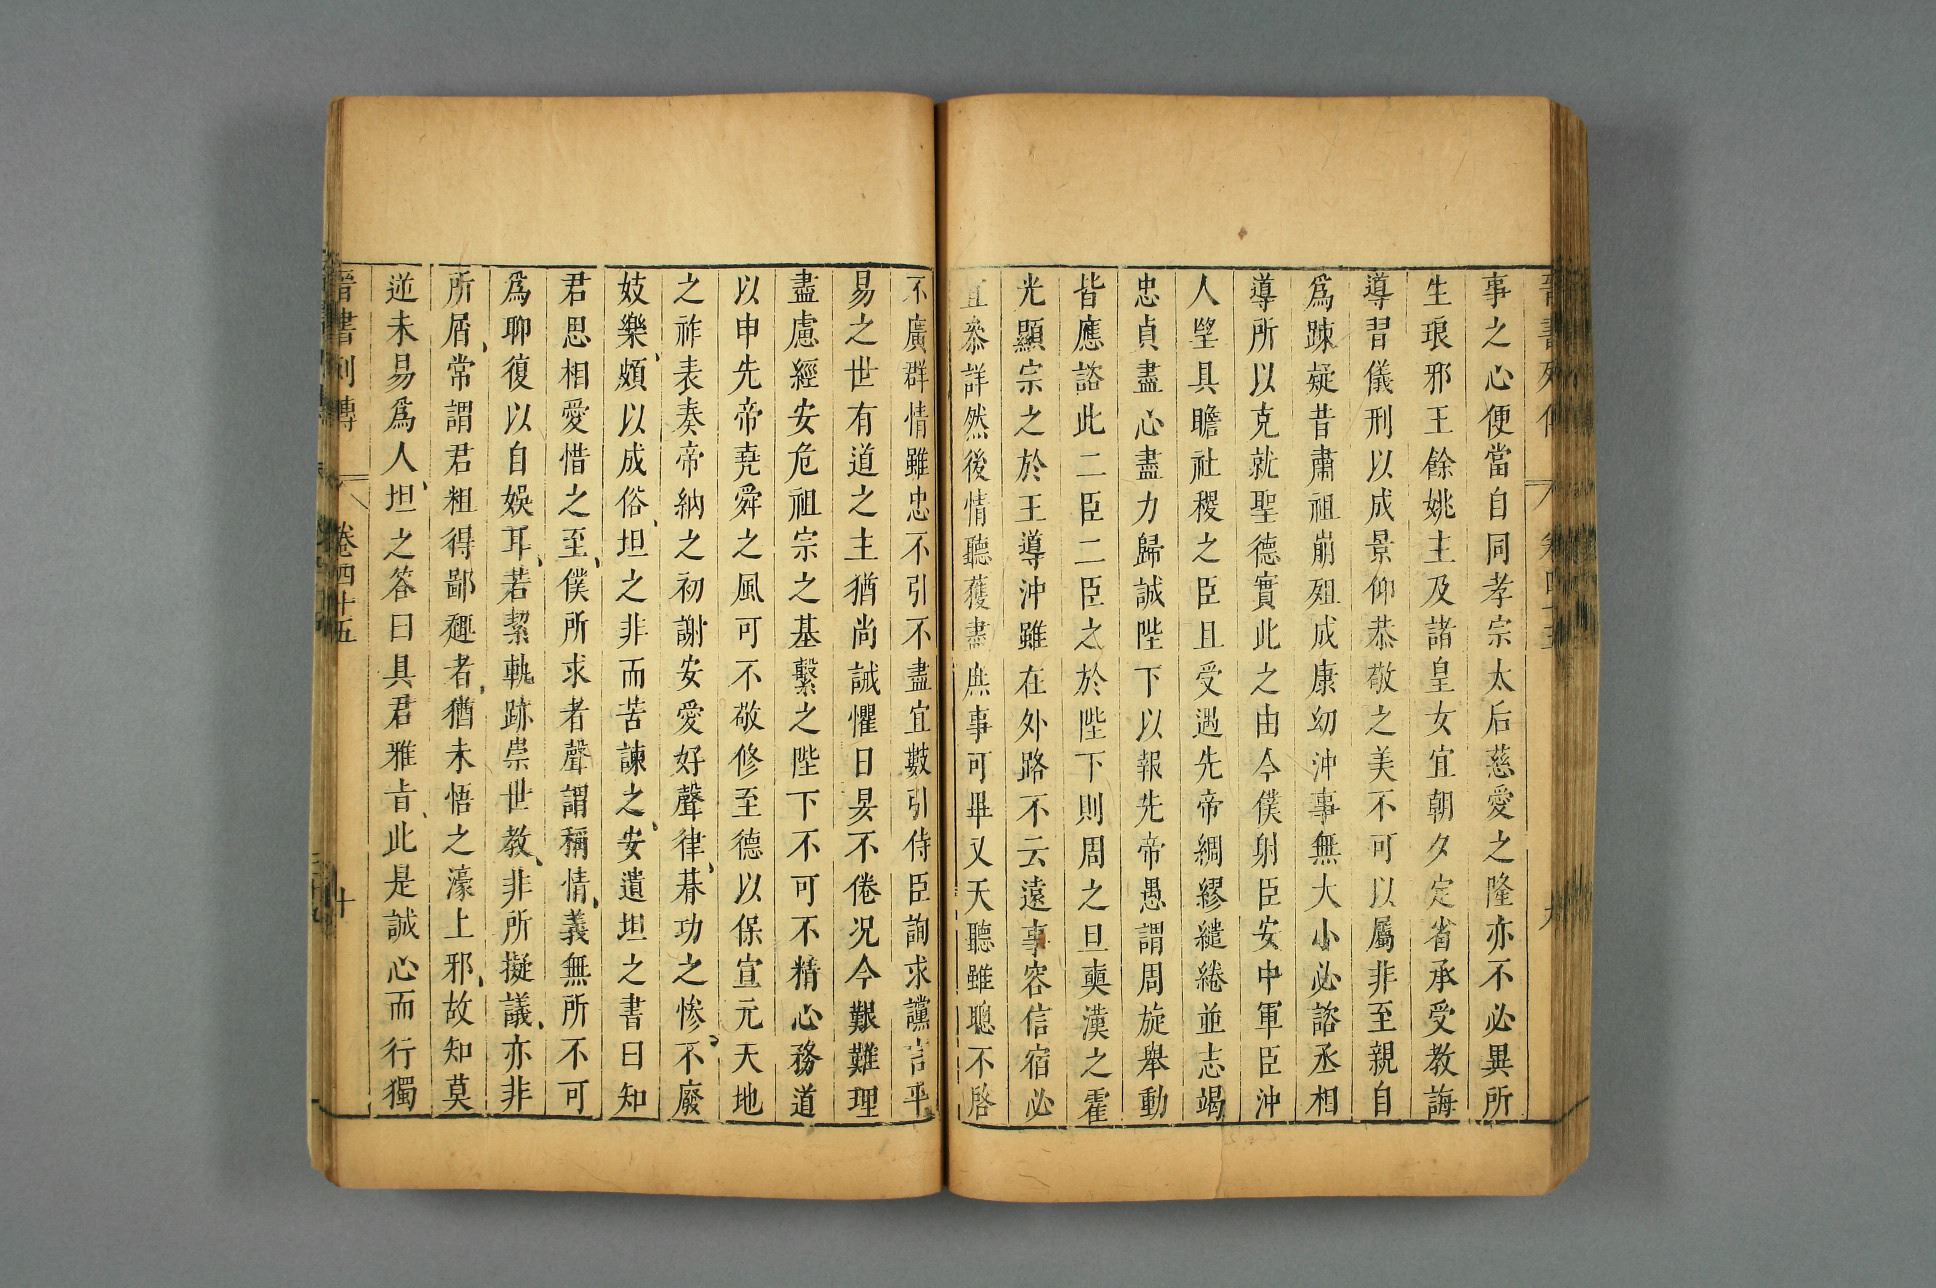 事之心便當自同孝宗太后慈愛之隆亦不必異所
生琅邪王餘姚主及諸皇女宜朝夕定省承受教誨
導習儀刑以成景仰恭敬之美不可以屬非至親自
爲踈疑昔肅祖崩殂成康幼沖事無大小必諮丞相
導所以克就聖德實此之由今僕射臣安中軍臣沖
人望具瞻社稷之臣且受遇先帝綢繆繾綣並志竭
忠貞盡心盡力歸誠陛下以報先帝愚謂周旋舉動
皆應諮此二臣二臣之於陛下則周之旦奭漢之霍
光顯宗之於王導沖雖在外路不云遠事容信宿必
宜叅詳然後情聽獲盡庶事可畢又天聽雖聰不啓
不廣群情雖忠不引不盡宜數引侍臣詢求讜言平
易之世有道之主猶尚誡懼日昃不倦况今艱難理
盡慮經安危祖宗之基繫之陛下不可不精心務道
以申先帝堯舜之風可不敬修至德以保宣元天地
之祚表奏帝納之初謝安愛好聲律朞功之慘不廢
妓樂頗以成俗坦之非而苦諫之安遺坦之書曰知
君思相愛惜之至僕所求者聲謂稱情義無所不可
爲聊復以自娛耳若絜軌跡崇世教非所擬議亦非
所屑常謂君粗得鄙趣者猶未悟之濠上邪故知莫
逆未易爲人坦之答曰具君雅旨此是誠心而行獨
晉書列傳 卷四十五 十